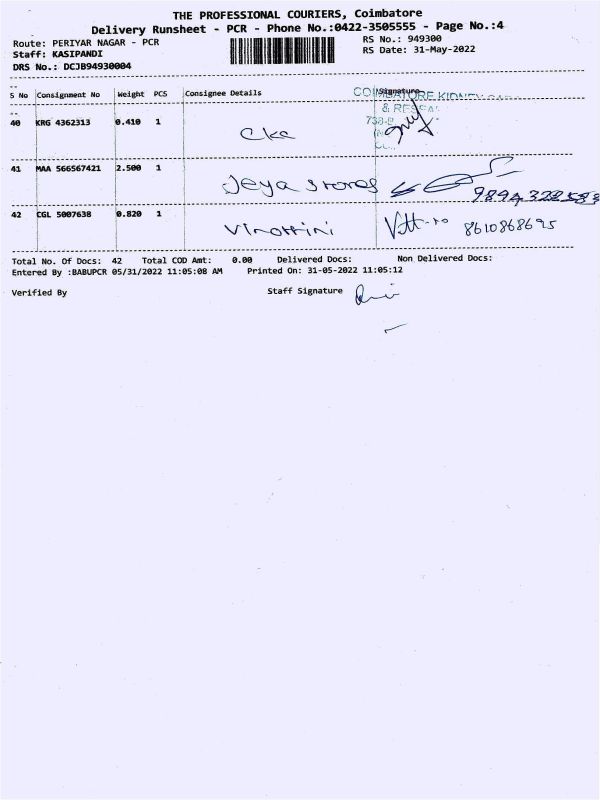 THE PROFESSIONAL COURIERS, Coimbatore
Delivery Runsheet - PCR - Phone No.:0422-3505555 - Page No.:4
Route: PERIYAR NAGAR - PCR
RS No.: 949300
Staff: KASIPANDI
RS Date: 31-May-2022
DRS No.: DCJB94930004
S No Consignment No Weight PCS Consignee Details Signature
COIMBATORE KIDNEY
40 KRG 4362313 0.410 1 CKC
41 MAA 566567421 2.500 1 Jeya Stores
42 CGL 5007638 0.820 1 8610868695
Total No. Of Docs: 42 Total COD Amt: 0.00 Delivered Docs: Non Delivered Docs:
Entered By :BABUPCR 05/31/2022 11:05:08 AM Printed On: 31-05-2022 11:05:12
Verified By Staff Signature